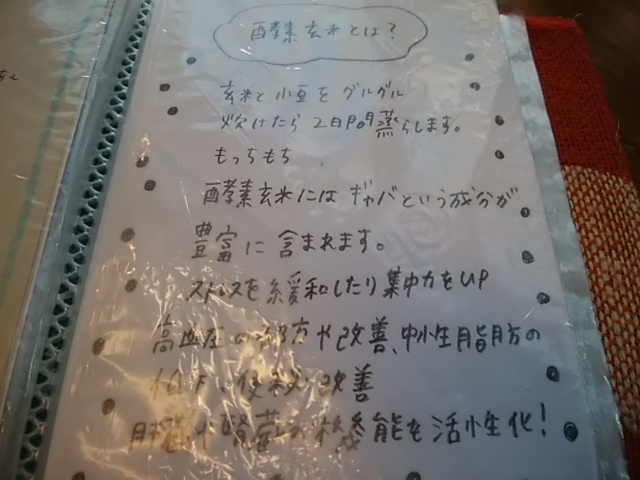 酵素玄米とは?
玄米と小豆をグルグル
炊けたら2日間蒸らします。
もっちもち
酵素玄米にはギャバという成分が
豊富に含まれます。
ストレスを緩和したり集中力をUP
高血圧の予防や改善、中性脂肪の
低下、便秘の改善
肝臓や腎臓の機能を活性化!